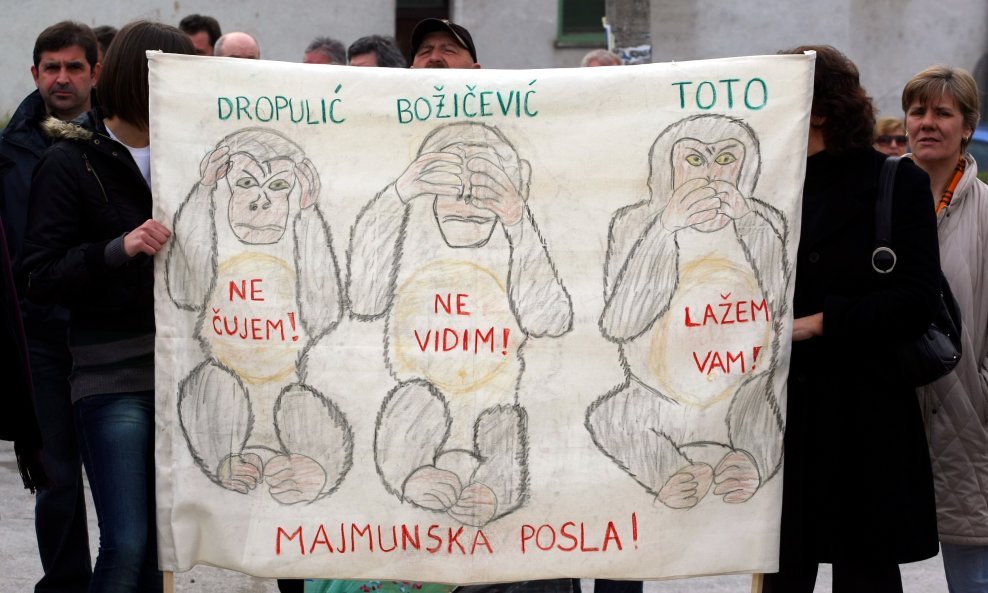 DROPULIĆ BOŽIČEVIĆ TOTO
NE
ČUJEM!
NE
VIDIM!
LAŽEM
VAM!
MAJMUNSKA POSLA!